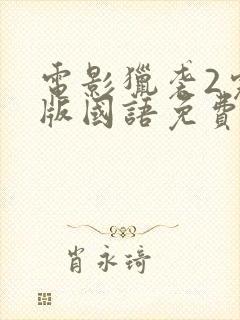 電影獵袭2完
版國語免費
肖永琦